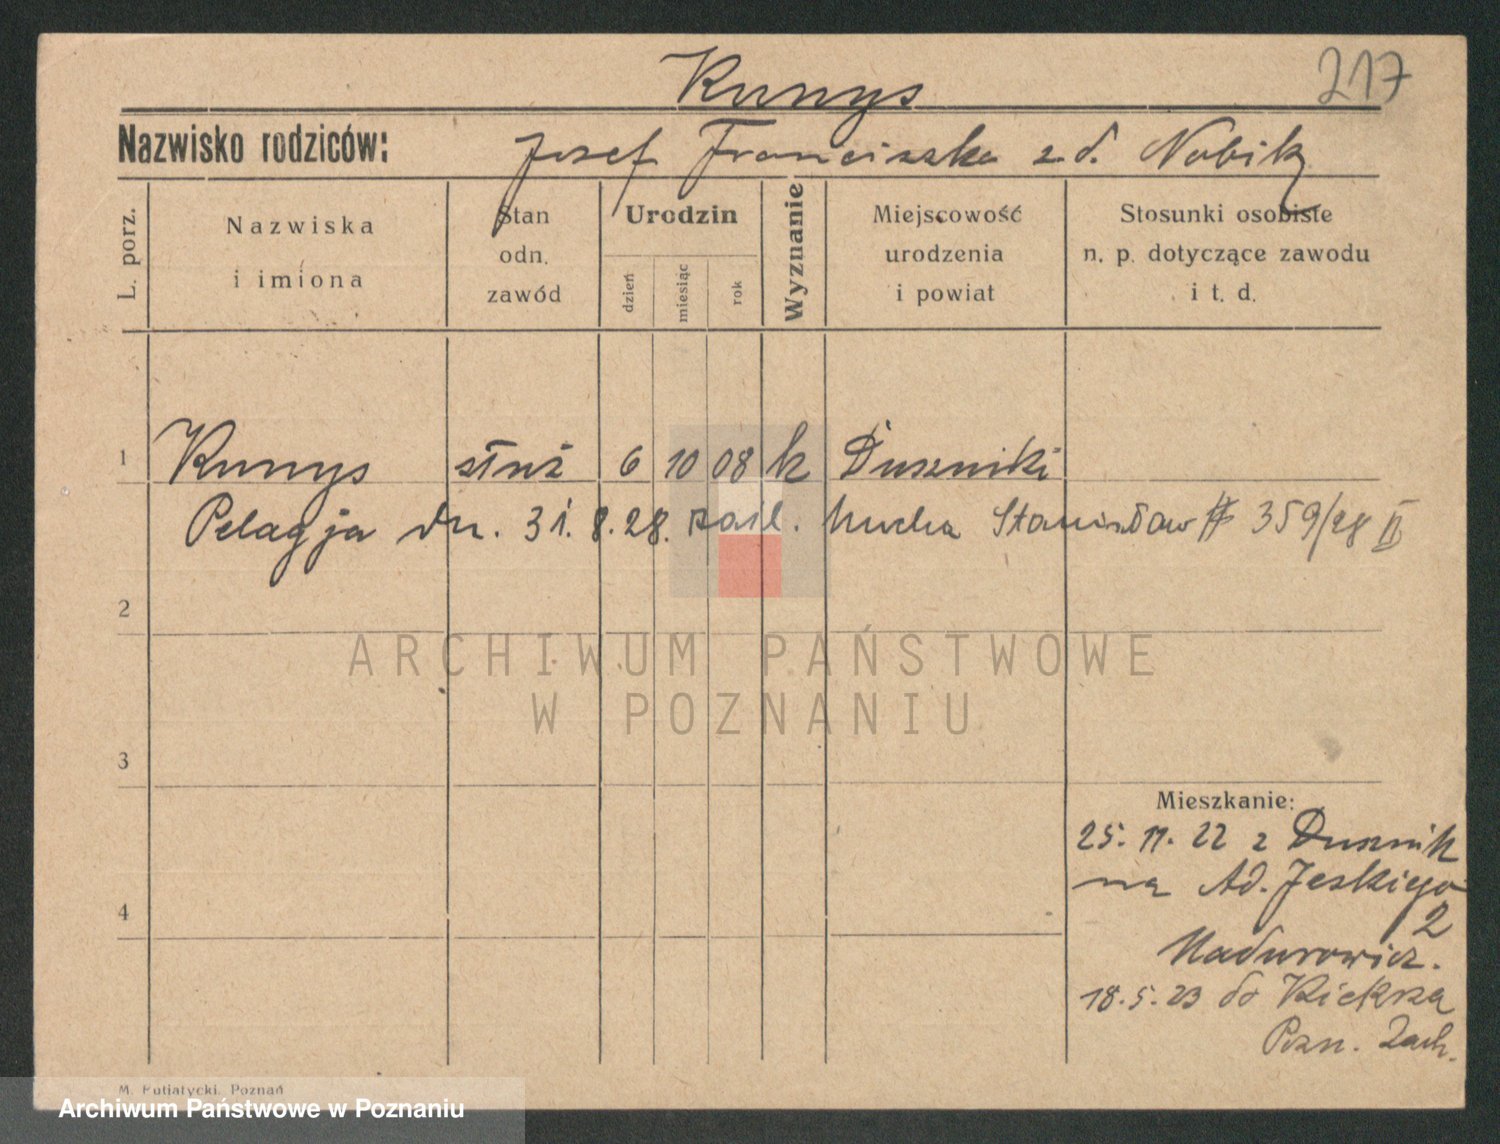 Kunys
217
Nazwisko rodziców: Josef Franciszka z d. Nobik
L. porz.
Nazwiska i imiona
Stan odn. zawód
Urodzin
dzień
miesiąc
rok
Wyznanie
Miejscowość urodzenia i powiat
Stosunki osobiste n. p. dotyczące zawodu i t. d.
1 Kunys służ 6 10 08 k Duszniki
Pelagja dn. 31.8.28. zaśl. Mucha Stanisław # 359/28 II
2
ARCHIWUM PAŃSTWOWE
W POZNANIU
3
Mieszkanie:
25. 11. 22 z Dusznik
na Ad. Jeskiego
2
Madurowicz.
18. 5. 23 do Kiekrza
Pozn. Zach.
4
M. Putiatycki, Poznań
Archiwum Państwowe w Poznaniu